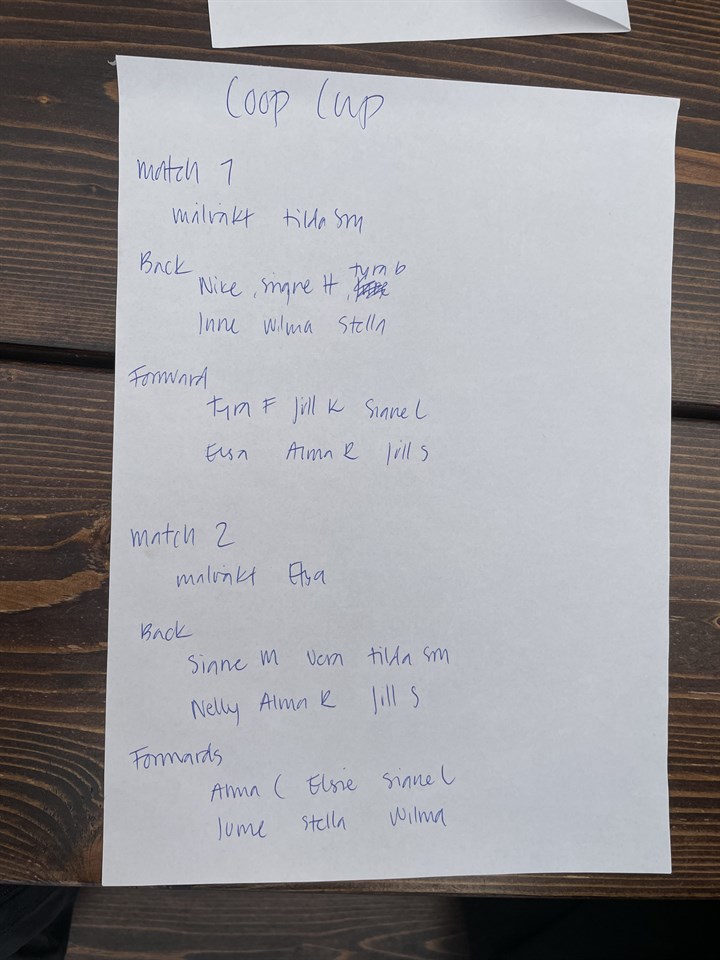 Coop Cup
match 1
målvakt tilda Sm
Back
tyra b
Nike, signe H,
wilma Stella
Forward
tyra F Jill K Signe L
Elsa Alma R Jill S
match 2
målvakt Elsa
Back
Signe M Vera tilda Sm
Nelly Alma R Jill S
Forwards
Alma C Elsie Signe L
stella wilma